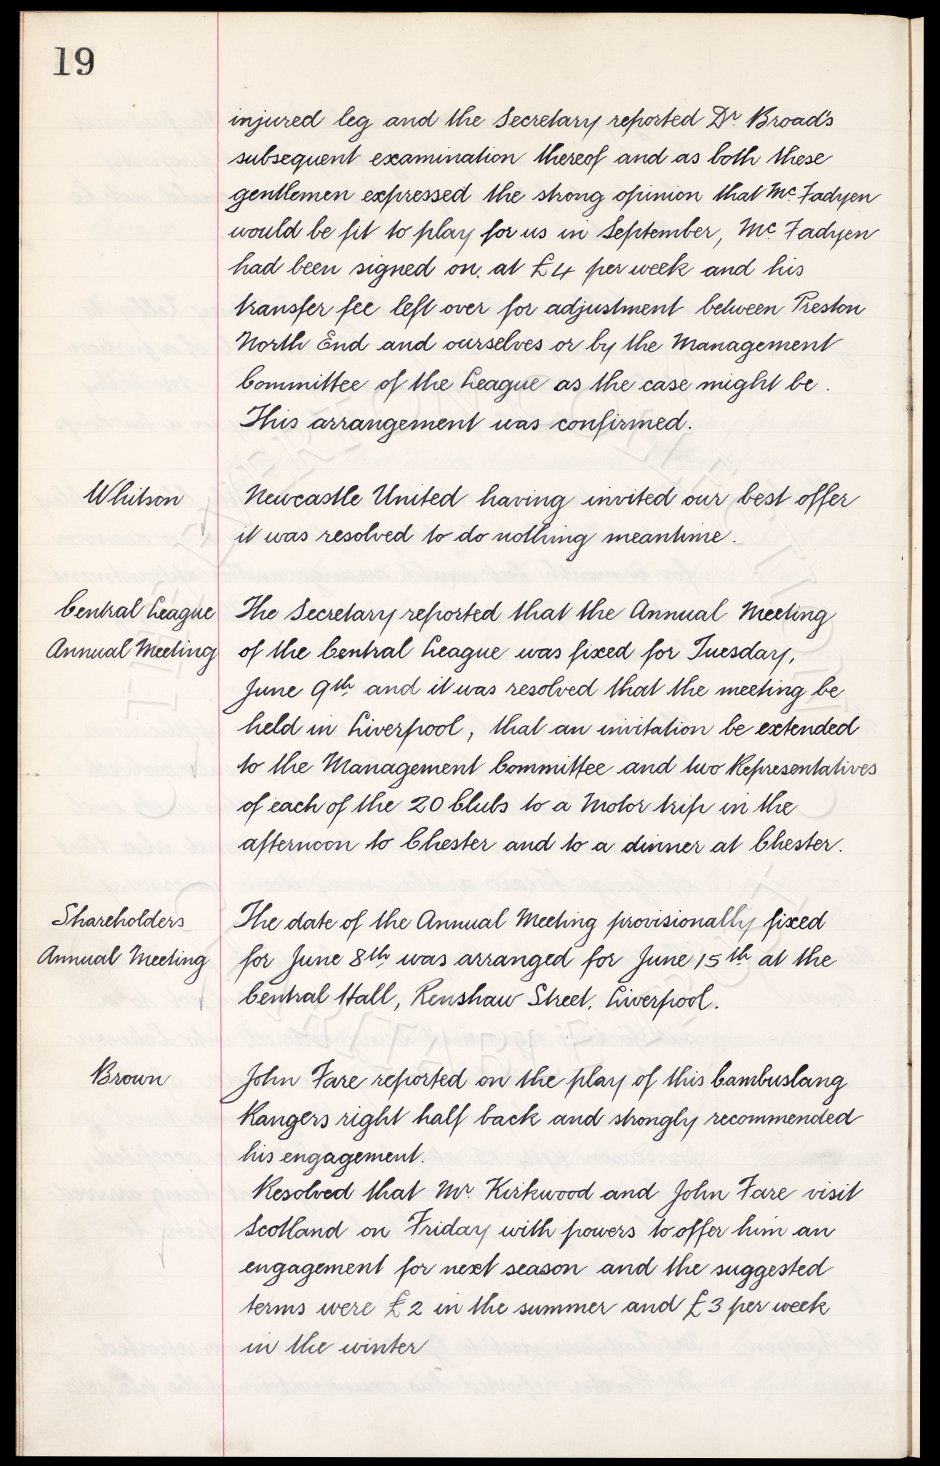 19
injured leg and the Secretary reported Dr. Broad's
subsequent examination thereof and as both these
gentlemen expressed the strong opinion that Mc. Fadyen
would be fit to play for us in September, Mc. Fadyen
had been signed on. at £4 per week and his
transfer fee left over for adjustment between Preston
North End and ourselves or by the Management
Committee of the League as the case might be.
This arrangement was confirmed.
Whitson
Newcastle United having invited our best offer
it was resolved to do nothing meantime.
Central League
Annual Meeting
The Secretary reported that the Annual Meeting
of the Central League was fixed for Tuesday,
June 9th. and it was resolved that the meeting be
held in Liverpool, that an invitation be extended
to the Management Committee and two Representatives
of each of the 20 Clubs to a Motor trip in the
afternoon to Chester and to a dinner at Chester.
Shareholders
Annual Meeting
The date of the Annual Meeting provisionally fixed
for June 8th. was arranged for June 15th. at the
Central Hall, Renshaw Street, Liverpool.
Brown
John Fare reported on the play of this Cambuslang
Rangers right half back and strongly recommended
his engagement.
Resolved that Mr. Kirkwood and John Fare visit
Scotland on Friday with powers to offer him an
engagement for next season and the suggested
terms were £2 in the summer and £3 per week
in the winter